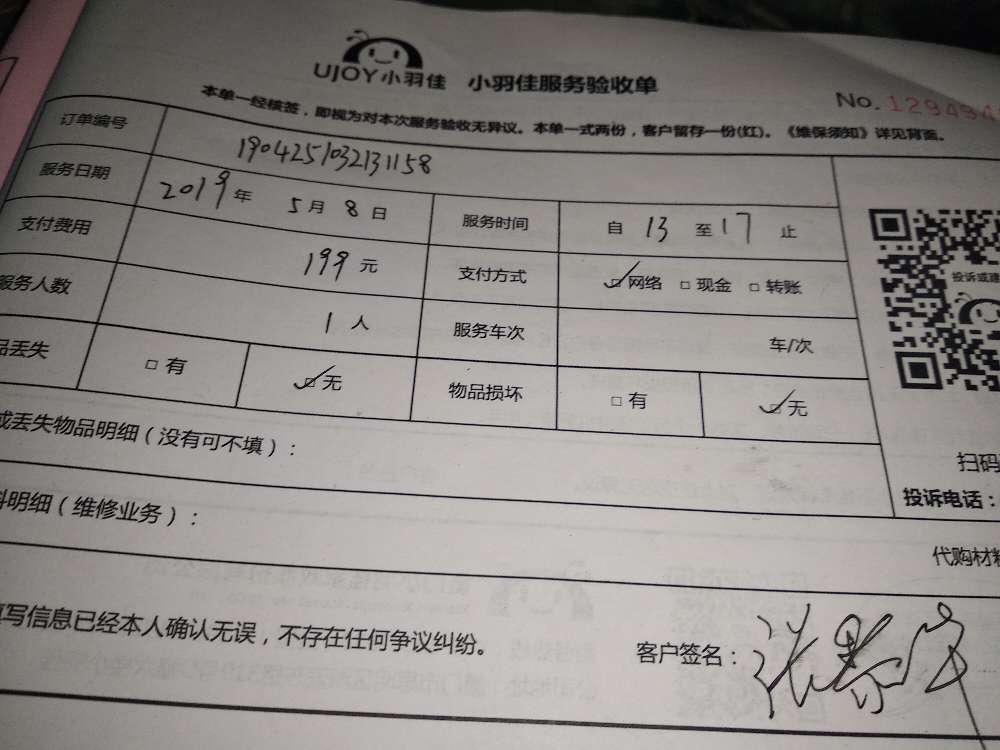 UJOY小羽佳 小羽佳服务验收单
No.129494
本单一经核签，即视为对本次服务验收无异议。本单一式两份，客户留存一份(红)。《维保须知》详见背面。
订单编号 1904251032131158
服务日期 2019年 5月 8日 服务时间 自 13 至 17 止
支付费用 199元 支付方式 ☑网络 □现金 □转账
服务人数 1人 服务车次 车/次
品丢失 □有 ☑无 物品损坏 □有 ☑无
投诉或建
或丢失物品明细（没有可不填）：
扫码
投诉电话：
料明细（维修业务）：
代购材料
填写信息已经本人确认无误，不存在任何争议纠纷。
客户签名：